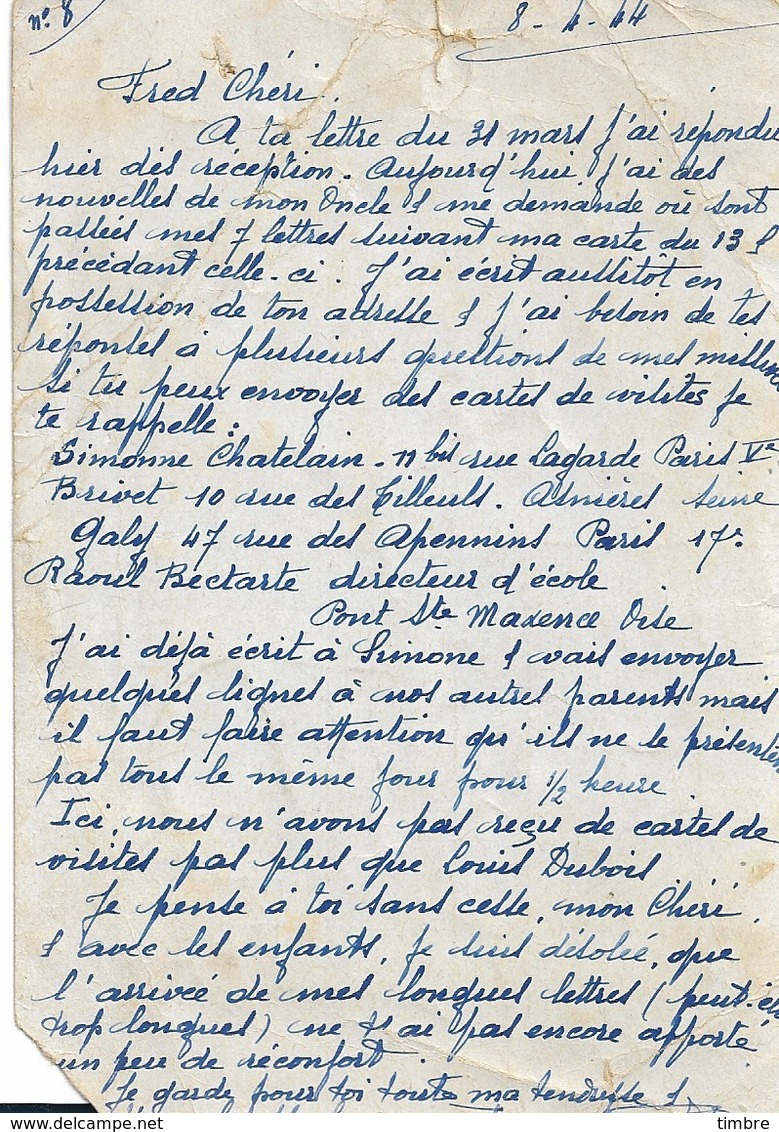 n° 8
8-4-44
Fred Chéri.
A ta lettre du 31 mars j'ai répondu
hier dès réception. Aujourd'hui j'ai des
nouvelles de mon Oncle & me demande où sont
passées mes 7 lettres suivant ma carte du 13 &
précédant celle-ci. J'ai écrit aussitôt en
possession de ton adresse & j'ai besoin de tes
réponses à plusieurs questions de mes
Si tu peux envoyer des cartes de visites je
te rappelle :
Simonne Chatelain - 11 bis rue Lagarde Paris Ve
Brivet 10 rue des Tilleuls. Asnières Seine
Galy 47 rue des Apennins Paris 17e
Raoul Bectarte directeur d'école
Pont Ste Maxence Oise
J'ai déjà écrit à Simone & vais envoyer
quelques lignes à nos autres parents mais
il faut faire attention qu'ils ne se présentent
pas tous le même jour pour 1/2 heure.
Ici, nous n'avons pas reçu de cartes de
visites pas plus que Louis Dubois
Je pense à toi sans cesse, mon Chéri,
& avec les enfants, je suis désolée, que
l'arrivée de mes longues lettres (peut-ê
trop longues) ne t'ai pas encore apporté
un peu de réconfort.
Je garde pour toi toute ma tendresse &
timbre